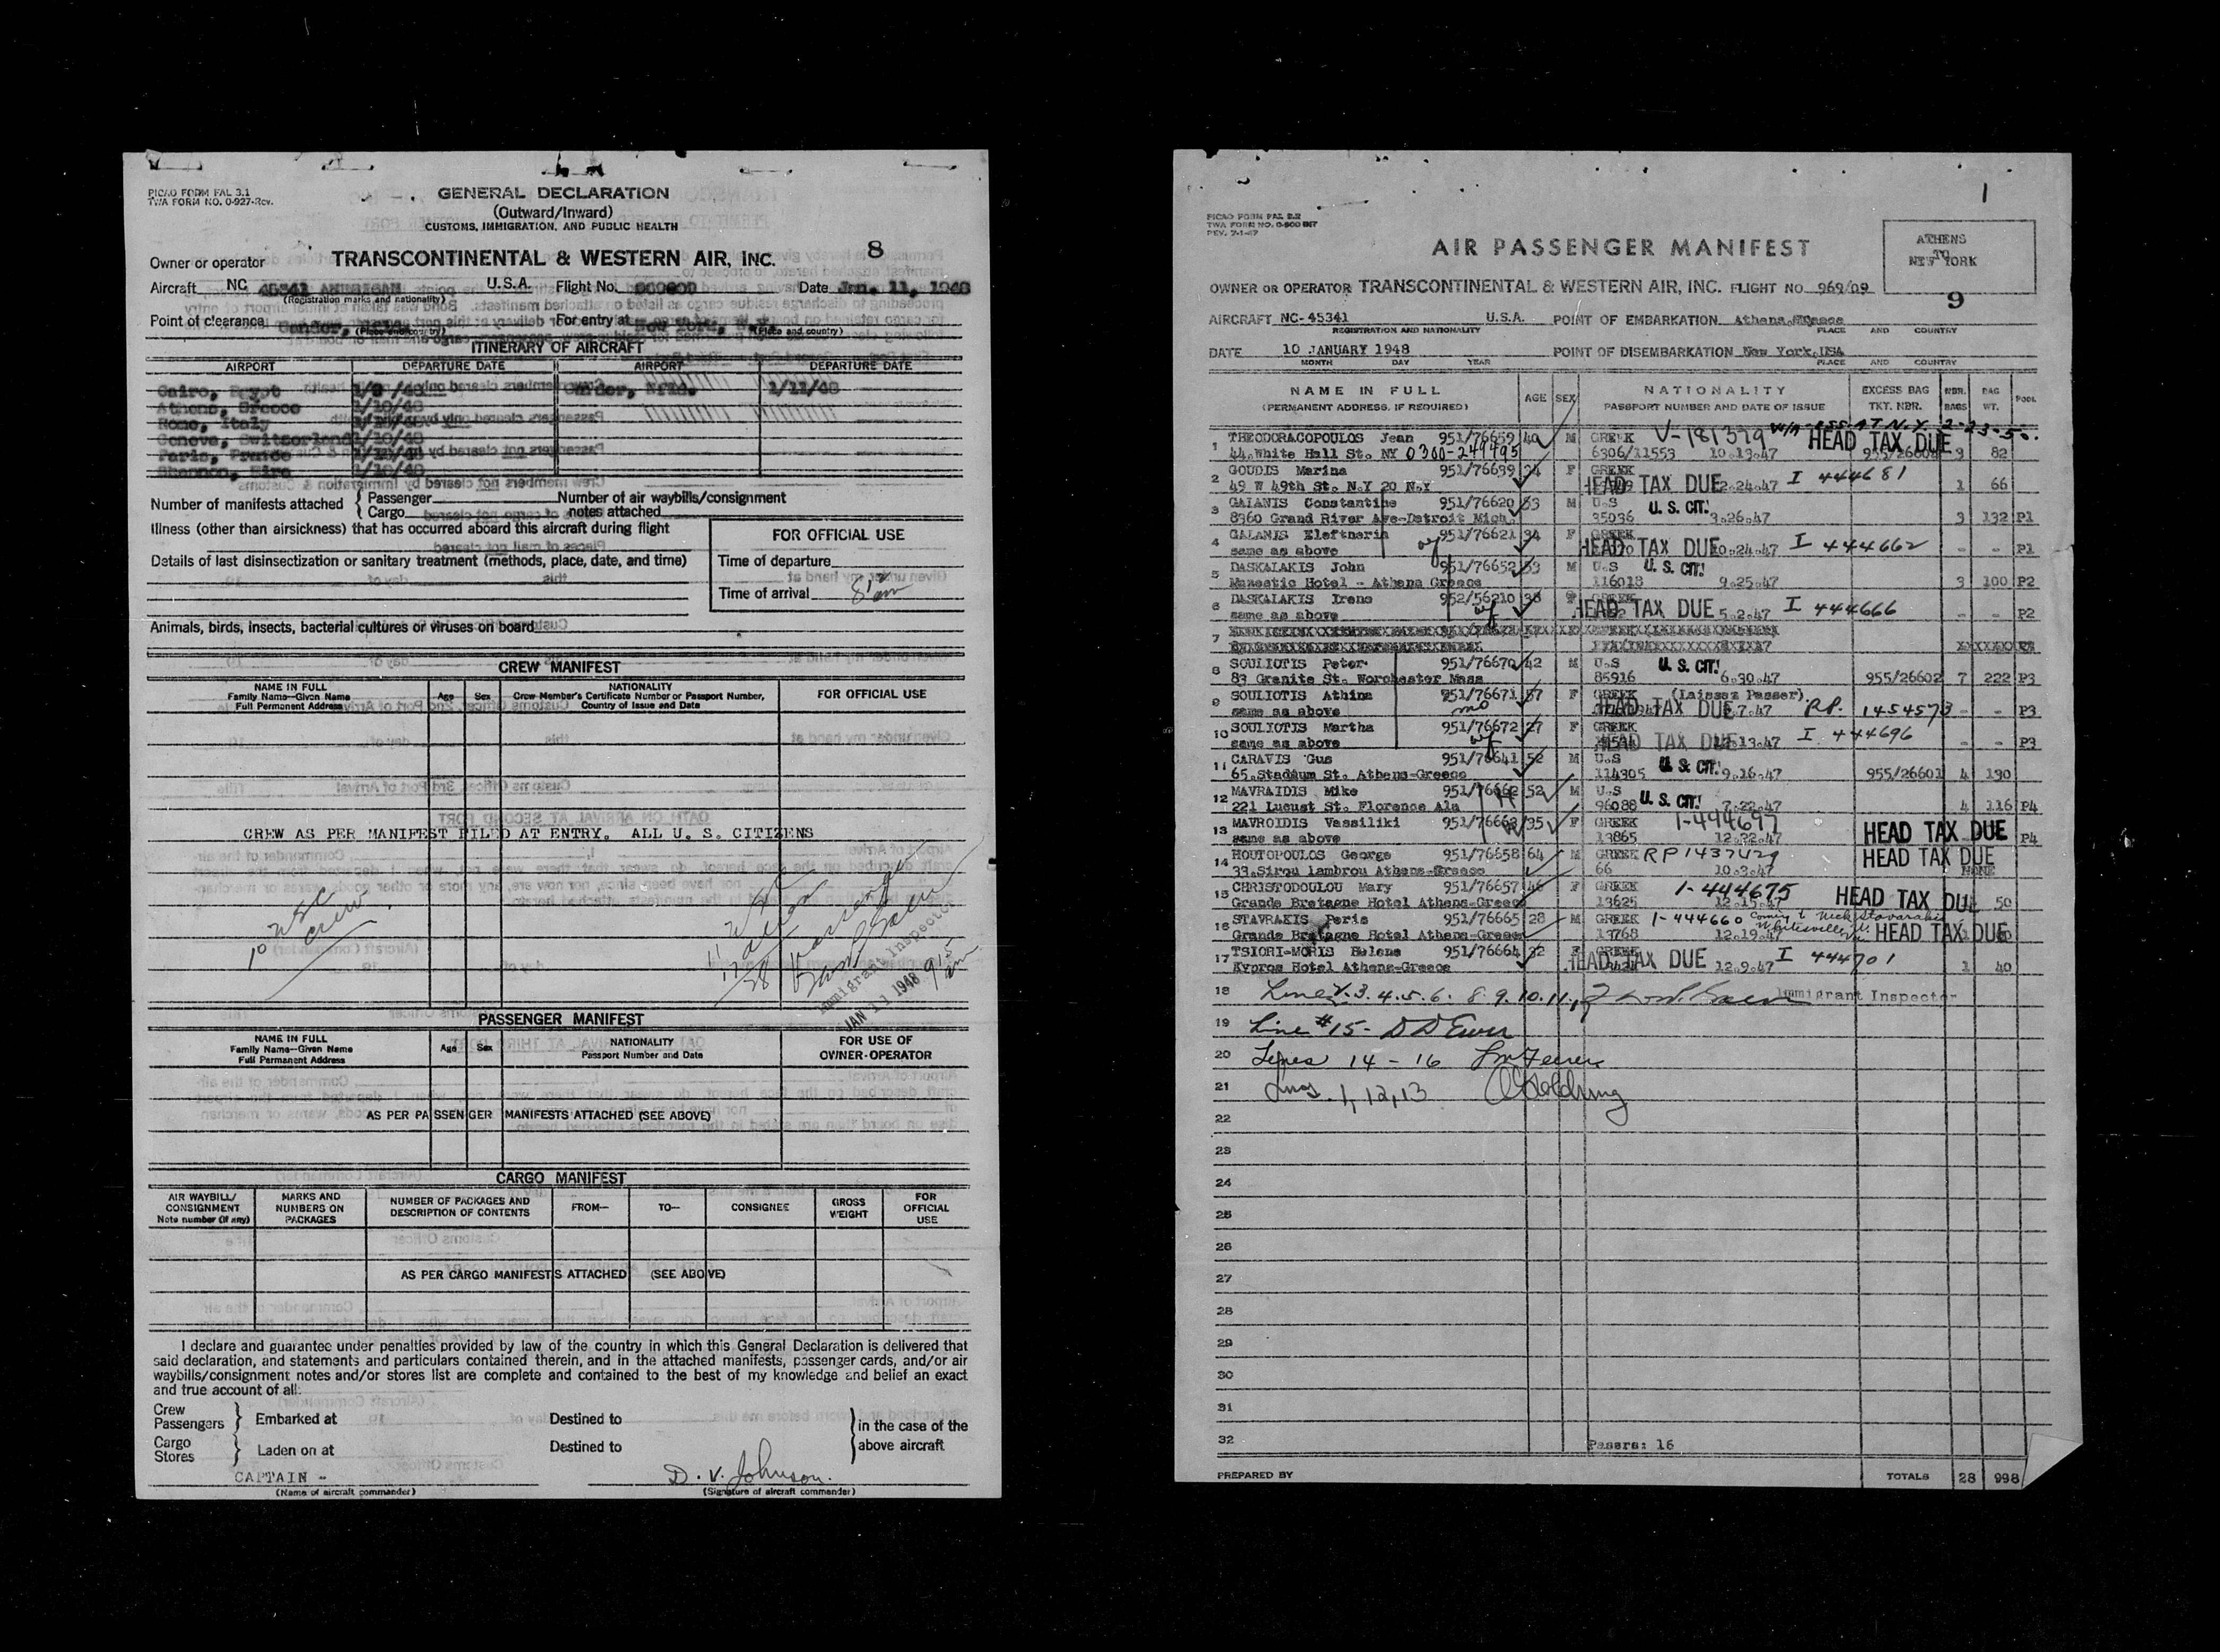 PICAO FORM FAL 3.1
TWA FORM NO. 0-927-Rev.
GENERAL DECLARATION
(Outward/Inward)
CUSTOMS, IMMIGRATION, AND PUBLIC HEALTH
8
Owner or operator TRANSCONTINENTAL & WESTERN AIR, INC.
Aircraft NC 45341 AMERICAN U.S.A. Flight No. Date Jan. 11, 1948
(Registration marks and nationality)
Point of clearance Gander, Nfld. For entry at New York, N.Y.
(Place and country) (Place and country)
ITINERARY OF AIRCRAFT
AIRPORT DEPARTURE DATE AIRPORT DEPARTURE DATE
Cairo, Egypt 1/9/48 Gander, Nfld. 1/11/48
Athens, Greece 1/10/48
Rome, Italy 1/10/48
Geneva, Switzerland 1/10/48
Paris, France 1/10/48
Shannon, Eire 1/10/48
Number of manifests attached { Passenger Number of air waybills/consignment
Cargo notes attached
Illness (other than airsickness) that has occurred aboard this aircraft during flight
Details of last disinsectization or sanitary treatment (methods, place, date, and time)
FOR OFFICIAL USE
Time of departure
Time of arrival 8 am
Animals, birds, insects, bacterial cultures or viruses on board
CREW MANIFEST
NAME IN FULL
Family Name—Given Name
Full Permanent Address
Age Sex
NATIONALITY
Crew Member's Certificate Number or Passport Number,
Country of Issue and Date
FOR OFFICIAL USE
CREW AS PER MANIFEST FILED AT ENTRY. ALL U. S. CITIZENS
10 USC
Crew
11 USC
17 alien
28
Immigrant Inspector
JAN 11 1948
9 15 am
PASSENGER MANIFEST
NAME IN FULL
Family Name—Given Name
Full Permanent Address
Age Sex
NATIONALITY
Passport Number and Date
FOR USE OF
OWNER-OPERATOR
AS PER PASSENGER MANIFESTS ATTACHED (SEE ABOVE)
CARGO MANIFEST
AIR WAYBILL/
CONSIGNMENT
Note number (if any)
MARKS AND
NUMBERS ON
PACKAGES
NUMBER OF PACKAGES AND
DESCRIPTION OF CONTENTS
FROM—
TO—
CONSIGNEE
GROSS
WEIGHT
FOR
OFFICIAL
USE
AS PER CARGO MANIFESTS ATTACHED (SEE ABOVE)
I declare and guarantee under penalties provided by law of the country in which this General Declaration is delivered that
said declaration, and statements and particulars contained therein, and in the attached manifests, passenger cards, and/or air
waybills/consignment notes and/or stores list are complete and contained to the best of my knowledge and belief an exact
and true account of all:
Crew
Passengers } Embarked at Destined to } in the case of the
Cargo
Stores } Laden on at Destined to above aircraft
CAPTAIN - D. V. Johnson.
(Name of aircraft commander) (Signature of aircraft commander)
1
PICAO FORM FAL 2.2
TWA FORM NO. 0-900 INT
REV. 7-1-47
AIR PASSENGER MANIFEST
ATHENS
TO
NEW YORK
9
OWNER OR OPERATOR TRANSCONTINENTAL & WESTERN AIR, INC. FLIGHT NO 969/09
AIRCRAFT NC-45341 U.S.A. POINT OF EMBARKATION Athens, Greece
REGISTRATION AND NATIONALITY PLACE AND COUNTRY
DATE 10 JANUARY 1948 POINT OF DISEMBARKATION New York, USA
MONTH DAY YEAR PLACE AND COUNTRY
NAME IN FULL
(PERMANENT ADDRESS, IF REQUIRED)
AGE SEX
NATIONALITY
PASSPORT NUMBER AND DATE OF ISSUE
EXCESS BAG
TKT. NBR.
NBR. BAGS
BAG WT.
POOL
1 THEODORACOPOULOS Jean 951/76659 40 M GREEK V-181379 HEAD TAX DUE
44.White Hall St. NY 0300-249495 6306/11553 10.13.47 3 82
2 GOUDIS Marina 951/76639 24 F GREEK
49 W 49th St. N.Y 20 N.Y HEAD TAX DUE 2.24.47 I 444681 1 66
3 GALANIS Constantine 951/76620 53 M U.S U. S. CIT.
8360 Grand River Ave-Detroit Mich. 35036 3.26.47 3 132 P1
4 GALANIS Eleftheria 951/76621 34 F GREEK
same as above wf HEAD TAX DUE 10.24.47 I 444662 - - P1
5 DASKALAKIS John 951/76652 53 M U.S U. S. CIT.
Majestic Hotel - Athens Greece 116018 9.25.47 3 100 P2
6 DASKALAKIS Irene 952/56210 38 F GREEK
same as above wf HEAD TAX DUE 5.2.47 I 444666 - - P2
7
8 SOULIOTIS Peter 951/76670 42 M U.S U. S. CIT.
83 Granite St. Worchester Mass 85916 6.30.47 955/26602 7 222 P3
9 SOULIOTIS Athina 951/76671 57 F GREEK (Laissez Passer)
same as above mo HEAD TAX DUE 7.47 RP. 1454573 - - P3
10 SOULIOTIS Martha 951/76672 27 F GREEK
same as above wf HEAD TAX DUE 13.47 I 444696 - - P3
11 CARAVIS Gus 951/76641 52 M U.S
65.Stadium St. Athens-Greece 114305 U. S. CIT. 9.16.47 955/26601 4 130
12 MAVRAIDIS Mike 951/76662 52 M U.S
221 Lucust St. Florence Ala 96088 U. S. CIT. 7.22.47 4 116 P4
13 MAVROIDIS Vassiliki 951/76663 35 F GREEK 1-444697
same as above 13865 12.22.47 HEAD TAX DUE P4
14 HOUTOPOULOS George 951/76658 64 M GREEK RP 1437429 HEAD TAX DUE
33.Sirou lambrou Athens-Greece 66 10.3.47 NONE
15 CHRISTODOULOU Mary 951/76657 46 F GREEK 1-444675 HEAD TAX DUE
Grande Bretagne Hotel Athens-Greece 13625 12.15.47 50
16 STAVRAKIS Peris 951/76665 28 M GREEK 1-444660 Coming to Nick Stavarakis
Grande Bretagne Hotel Athens-Greece 13768 12.19.47 Whitesville HEAD TAX DUE
17 TSIORI-MORIS Helene 951/76664 32 F GREEK
Kypros Hotel Athens-Greece HEAD TAX DUE 12.9.47 I 444701 1 40
18 Lines 2. 3. 4. 5. 6. 8. 9. 10. 11., Immigrant Inspector
19 Line #15- D D Ewen
20 Lines 14 - 16
21 Lines 1, 12, 13
22
23
24
25
26
27
28
29
30
31
32 Passrs: 16
PREPARED BY TOTALS 28 998